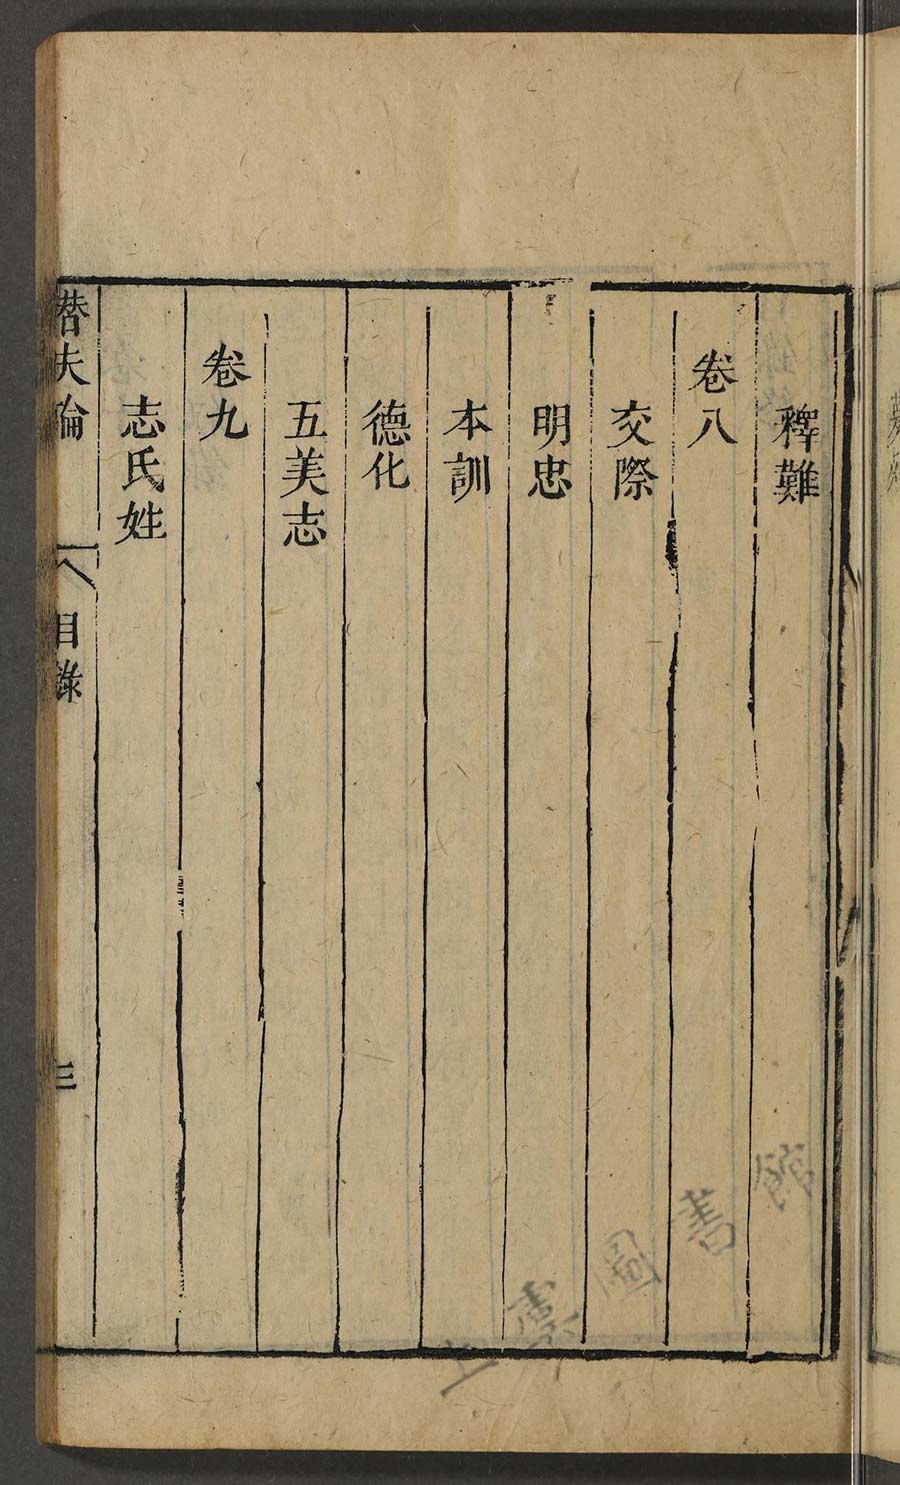 釋難
卷八
交際
明忠
本訓
德化
五美志
卷九
志氏姓
潛夫論 目錄 三
上虞圖書館